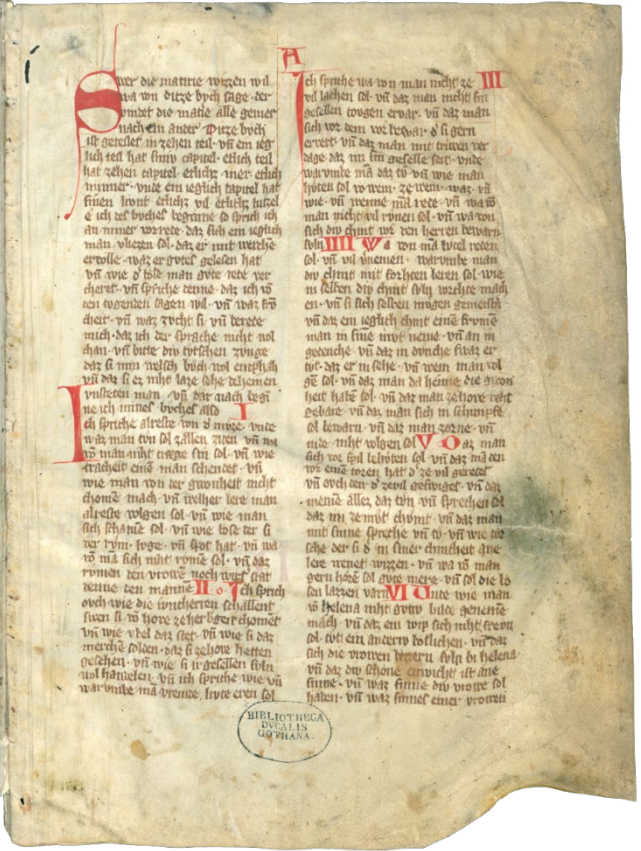 A
Swer die materie wizzen wil
wa von ditze bvch sage der
vindet die matie alle gemer
nach ein ander Ditze bvch
ist geteilet in zehen teil vn̄ ein ieg
lich teil hat siniv capitel etlich teil
hat zehen capitel etlichz mer etlich
minner vnde ein ieglich capitel hat
e ich des bvches beginne so sprich ich
an miner vorrede daz sich ein ieglich
man vliezen sol daz er mit werche
ervolle waz er gvtes gelesen hat
vn̄ wie d man gvte rede ver
cheret vn̄ spriche denne daz ich vō
ten tvgenden sagen wil vn̄ waz frv̄
cheit vn̄ waz zvcht si vn̄ bereite
mich daz ich der sprache niht wol
chan vn̄ bitte div tvtschen zvnge
daz si min welsch bvch wol entphah
vn̄ daz si ez niht laze sehe deheinen
vnsteten man vn̄ dar nach begī
ne ich mines bvches also I
Ich spriche alreste von d vnde
waz man tvn sol zallen ziten vn̄ wa
vō man niht traege sin sol vn̄ wie
tracheit eine man schendet vn̄
wie man von der gwonheit niht
chome mach vn̄ welher lere man
alreste volgen sol vn̄ wie man
sich schame sol vn̄ wie bose ter si
der rvm lvge vn̄ spot hat vn̄ wa
vō ma sich niht ryme sol vn̄ daz
rvmen den vrowē noch wirs stat
denne den mannē II Ich sprich
ovch wie die ivncherren schallent
swen si vō hove ze herbgert chomet
vn̄ wie vbel daz stet vn̄ wie si daz
merche solden daz si ze hove hetten
gesehen vn̄ wie si ir gesellen svln
wol handelen vn̄ ich spriche wie vn̄
warvmbe mā vremde livte eren sol
Ich spriche wa von man niht ze III
vil lachen sol vn̄ daz men nicht sin
gesellen tovgen ervar vn̄ daz man
sich vor dem we bewar d si gern
ervert vn̄ daz man mit triwen ver
dage daz im sin geselle seit vnde
warvmbe mā daz tv vn̄ wie man
hvten sol vō wem ze wem waz vn̄
wie vn̄ wenne mā rede vn̄ wa vō
man niht vil rvnen sol vn̄ wa von
sich div chint vor den herren bewarn
svln IIII Wa von mā lvcel reden
sol vn̄ vil vernemen warvmbe man
div chint mit forhten leren sol wie
in selben div chint svln vorhte mach
en vn̄ si sich selben mvgen gemeistā
vn̄ daz ein ieglich chint einē frvmē
man in sine mvt neme vn̄ an in
gedenche vn̄ daz in dvnche swaz er
tvt daz er in sehe vn̄ wem man vol
gē sol vn̄ daz man da heime die gwon
heit habē sol vn̄ daz man ze hove reht
gebare vn̄ daz man sich in schimpfe
sol bewarn vn̄ daz man zorne vn̄
nide niht volgen sol V Daz man
sich vor spil behvten sol vn̄ daz mā den
vor eine toren hat d ze vil geredet
vn̄ ovch den d zevil geswiget vn̄ daz
meine allez daz tvn vn̄ sprechen sol
daz im ze mvt chvmt vn̄ daz man
mit sinne spreche vn̄ tv vn̄ wie we
sche der si d in siner chintheit ane
lere wenet wizzen vn̄ wa vō man
gern horē sol gvte mere vn̄ sol die bo
sen lazzen varn VI Vnte wie man
vō helena niht gvtiv bilde genemē
mach vn̄ daz ein wip sich niht frevn
sol tvt ein anderiv boslichen vn̄ daz
sich die vrowen bezzern svln bi helena
vn̄ daz div schone enwiht ist ane
sinne vn̄ waz sinne div vrowe sol
haben vn̄ waz sinnes einer vrowen
BIBLIOTHECA
DVCALIS
GOTHANA.